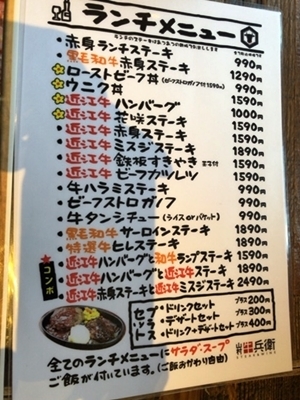 ランチメニュー
・赤身ランチステーキ 990円
・黒毛和牛赤身ステーキ 1290円
☆ローストビーフ丼 (ビーフストロガノフ付1590円) 990円
☆ウニク丼 1590円
☆近江牛ハンバーグ 1000円
☆近江牛花咲ステーキ 1590円
・近江牛赤身ステーキ 1590円
・近江牛ミスジステーキ 1890円
・近江牛鉄板すきやき 玉子付 1590円
・近江牛ビーフカツレツ 1590円
・牛ハラミステーキ 990円
・ビーフストロガノフ 990円
・牛タンシチュー(ライスorバゲット) 990円
・黒毛和牛サーロインステーキ 1890円
・特選牛ヒレステーキ 1890円
コンボ
・近江牛ハンバーグと和牛ランプステーキ 1590円
・近江牛ハンバーグと近江牛ステーキ 1890円
・近江牛赤身ステーキと近江牛ミスジステーキ 2490円
プラスセット
・ドリンクセット プラス200円
・デザートセット プラス300円
・ドリンク+デザートセット プラス400円
全てのランチメニューにサラダ・スープ
ご飯が付いています。(ご飯おかわり自由)
兵衛